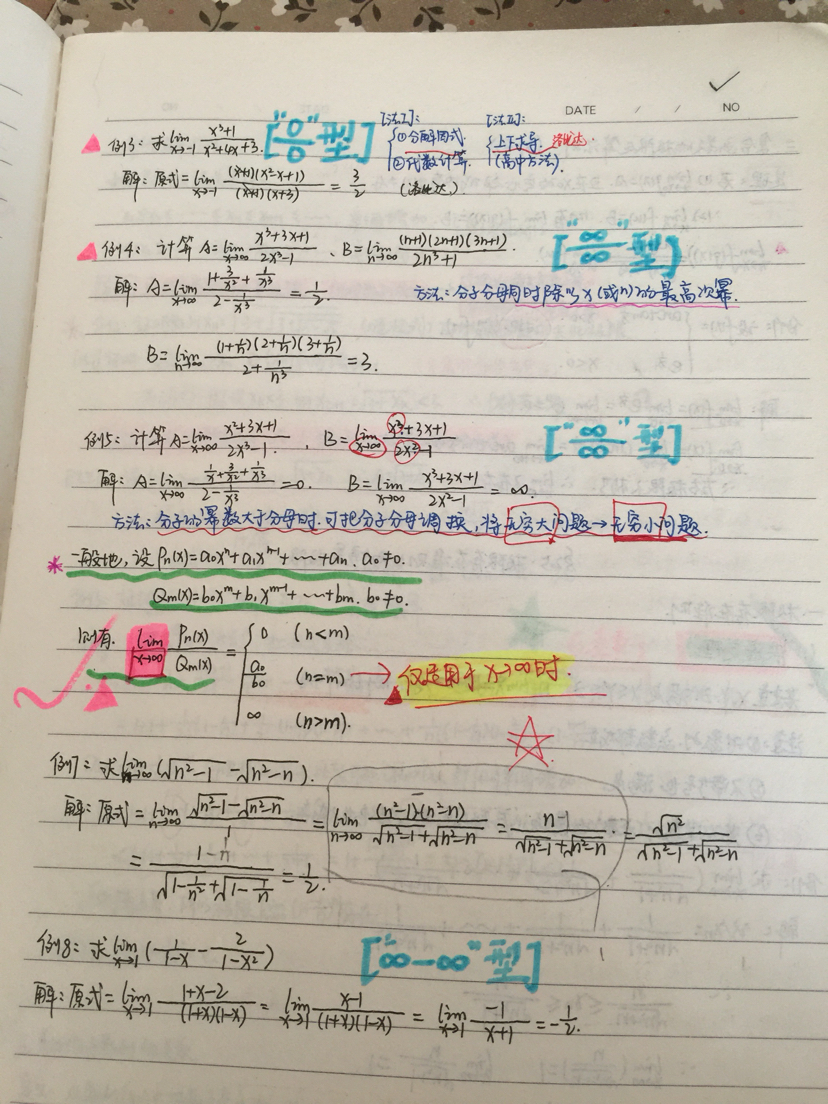 DATE / / NO
例3: 求 lim x→-1 (x³+1)/(x²+4x+3). ["0/0"型] [法I]: ①分解因式. ②代数计算. [法II]: 上下求导. 洛必达. (高中方法).
解: 原式= lim x→-1 (x+1)(x²-x+1)/(x+1)(x+3) = 3/2 (洛必达.)
例4: 计算 A= lim x→∞ (x³+3x+1)/(2x³-1) 、B= lim n→∞ (n+1)(2n+1)(3n+1)/(2n³+1) . ["∞/∞"型]
解: A= lim x→∞ (1+3/x²+1/x³)/(2-1/x³) = 1/2. 方法: 分子分母同时除以x(或n)的最高次幂.
B= lim n→∞ (1+1/n)(2+1/n)(3+1/n)/(2+1/n³) =3.
例5: 计算 A= lim x→∞ (x²+3x+1)/(2x³-1) . B= lim x→∞ (x³+3x+1)/(2x²-1) ["∞/∞"型]
解: A= lim x→∞ (1/x+3/x²+1/x³)/(2-1/x³) =0. B= lim x→∞ (x³+3x+1)/(2x²-1) =∞.
方法: 分子的幂数大于分母时.可把分子分母调换, 将无穷大问题→无穷小问题.
* 一般地, 设 Pn(x)=a₀xⁿ+a₁xⁿ⁻¹+……+an. a₀≠0.
Qm(x)=b₀xᵐ+b₁xᵐ⁻¹+……+bm. b₀≠0.
则有. lim x→∞ Pn(x)/Qm(x) = { 0 (n<m)
a₀/b₀ (n=m) → 仅适用于x→∞时.
∞ (n>m).
例7: 求 lim n→∞ (√n²-1 -√n²-n).
解: 原式= lim n→∞ (√n²-1-√n²-n)/1 = lim n→∞ (n²-1)-(n²-n)/(√n²-1+√n²-n) = (n-1)/(√n²-1+√n²-n) . = √n²/(√n²-1+√n²-n)
= (1-n)/(√1-1/n²+√1-1/n) = 1/2.
例8: 求 lim x→1 (1/(1-x) - 2/(1-x²)) ["∞-∞"型]
解: 原式= lim x→1 (1+x-2)/(1+x)(1-x) = lim x→1 (x-1)/(1+x)(1-x) = lim x→1 -1/(x+1) =-1/2.